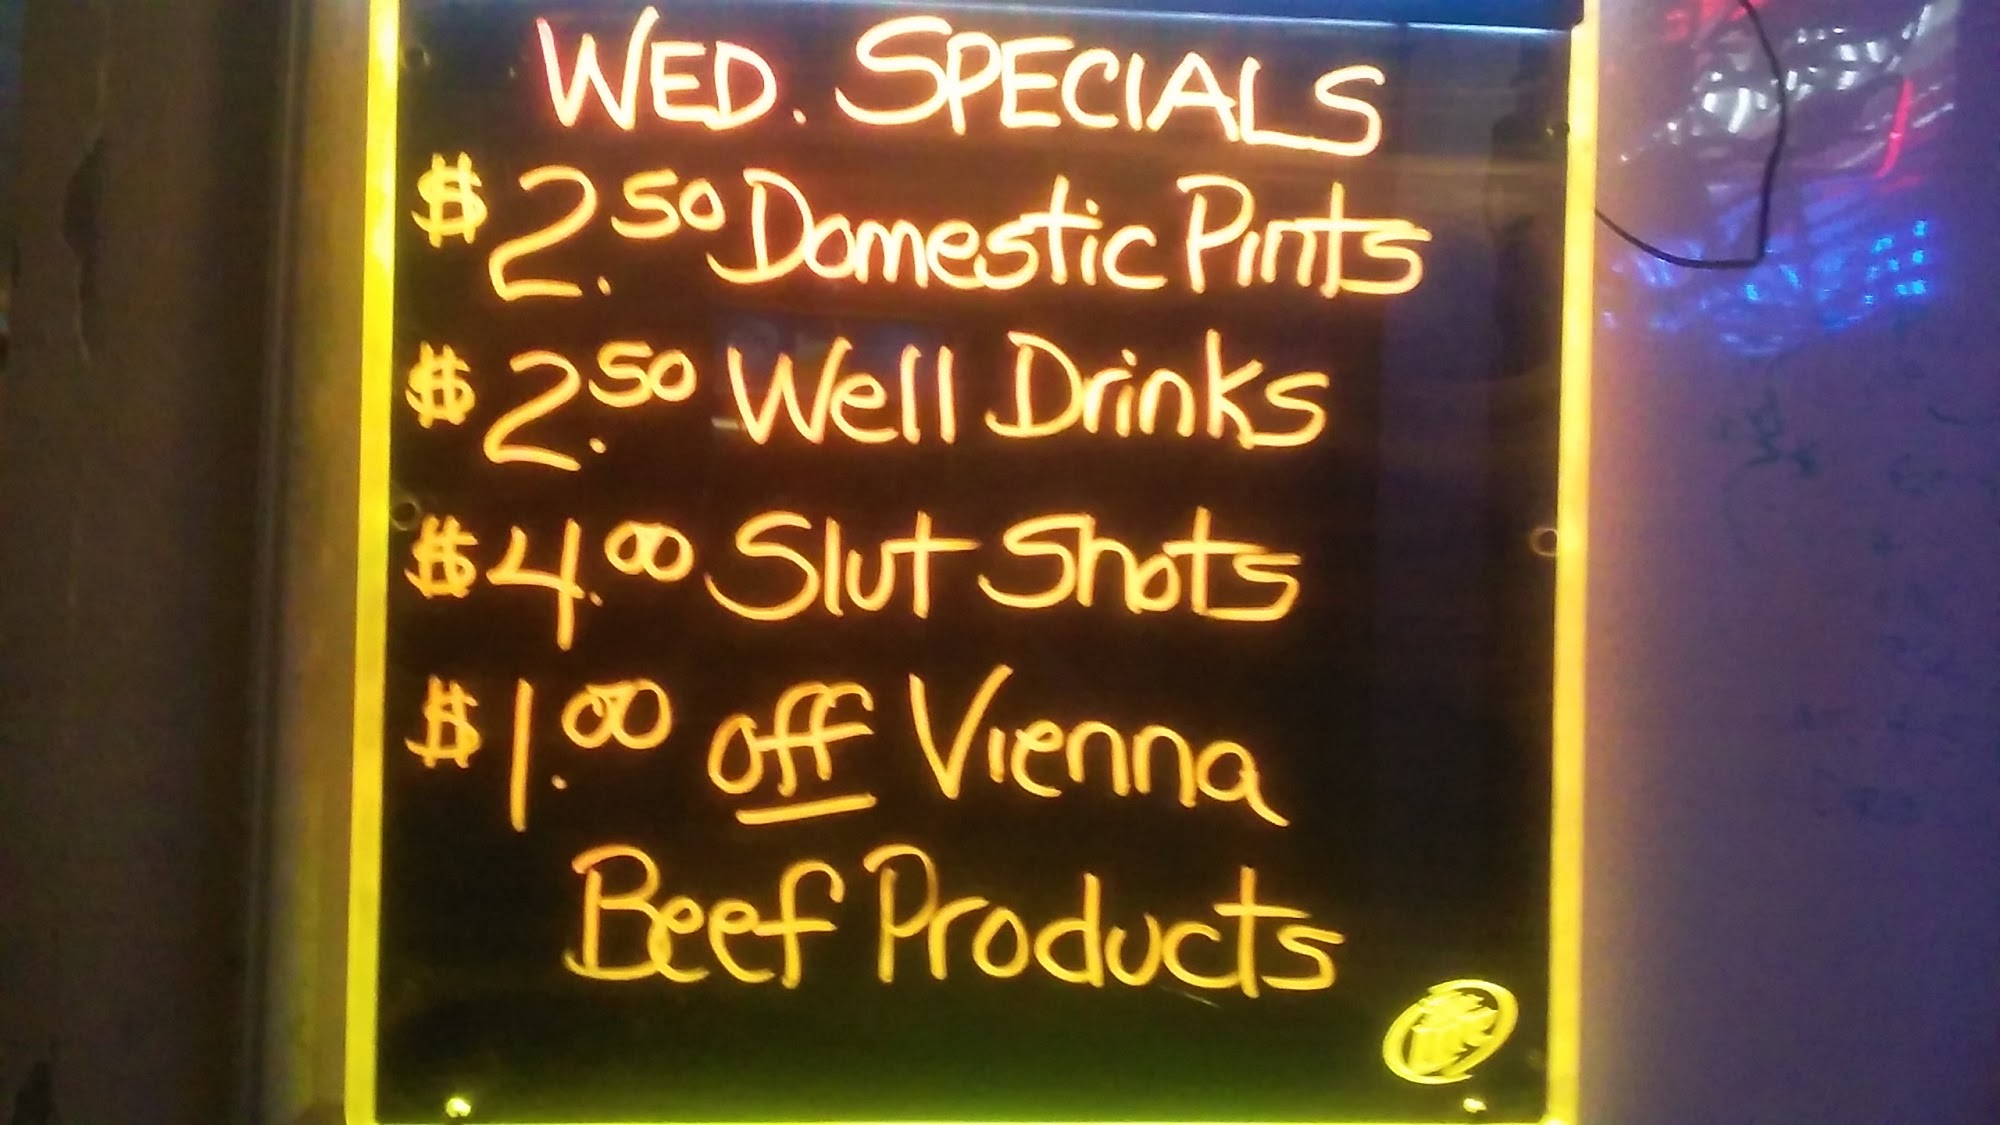 WED. SPECIALS
$2.50 Domestic Pints
$2.50 Well Drinks
$4.00 Slut Shots
$1.00 off Vienna
Beef Products